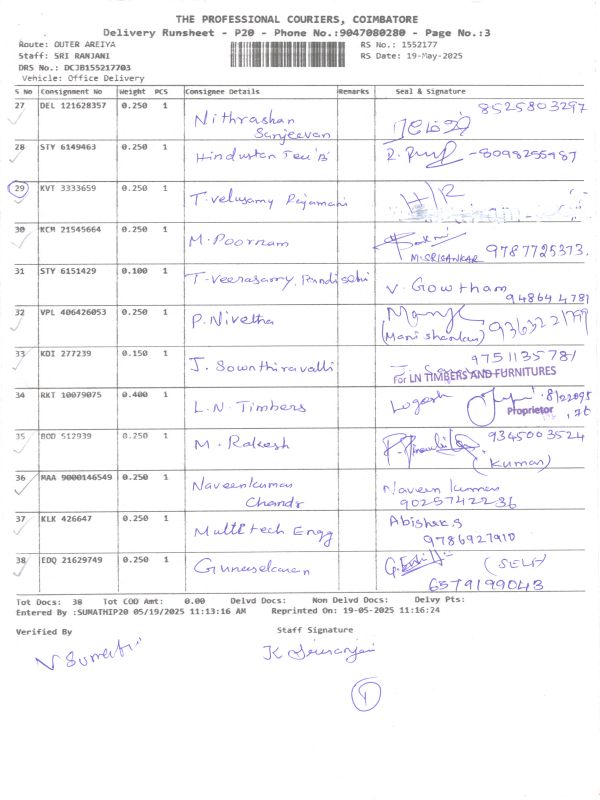 THE PROFESSIONAL COURIERS, COIMBATORE
Delivery Runsheet - P20 - Phone No.:9047080280 - Page No.:3
Route: OUTER AREIYA RS No.: 1552177
Staff: SRI RANJANI RS Date: 19-May-2025
DRS No.: DCJB155217703
Vehicle: Office Delivery
S No Consignment No Weight PCS Consignee Details Remarks Seal & Signature
27 DEL 121628357 0.250 1 Nithrashan Sanjeevan 8525803297
28 STY 6149463 0.250 1 Hindustan 8098255987
29 KVT 3333659 0.250 1 T. Velusamy Rajamani H/R
30 KCM 21545664 0.250 1 M. Poornam M. SRISANKAR 9787725373.
31 STY 6151429 0.100 1 T. Veerasamy, Pandiselvi V. Gowtham
94864 4781
32 VPL 406426053 0.250 1 P. Nivetha (Mani shankar) 9363221799
33 KDI 277239 0.150 1 J. Sownthiravalli 9751135781
For LN TIMBERS AND FURNITURES
34 RKT 10079075 0.400 1 L.N. Timbers Logesh
Proprietor
35 BOD 512939 0.250 1 M. Rakesh 9345003524
(Kumar)
36 MAA 9000146549 0.250 1 Naveenkumar Chandr Naveen kumar
9025742236
37 KLK 426647 0.250 1 Multitech Engg Abishek.S
9786927910
38 EDQ 21629749 0.250 1 Gunasekaran (SELF)
6579199043
Tot Docs: 38 Tot COD Amt: 0.00 Delvd Docs: Non Delvd Docs: Delvy Pts:
Entered By :SUMATHIP20 05/19/2025 11:13:16 AM Reprinted On: 19-05-2025 11:16:24
Verified By Staff Signature
V Sumathi
1